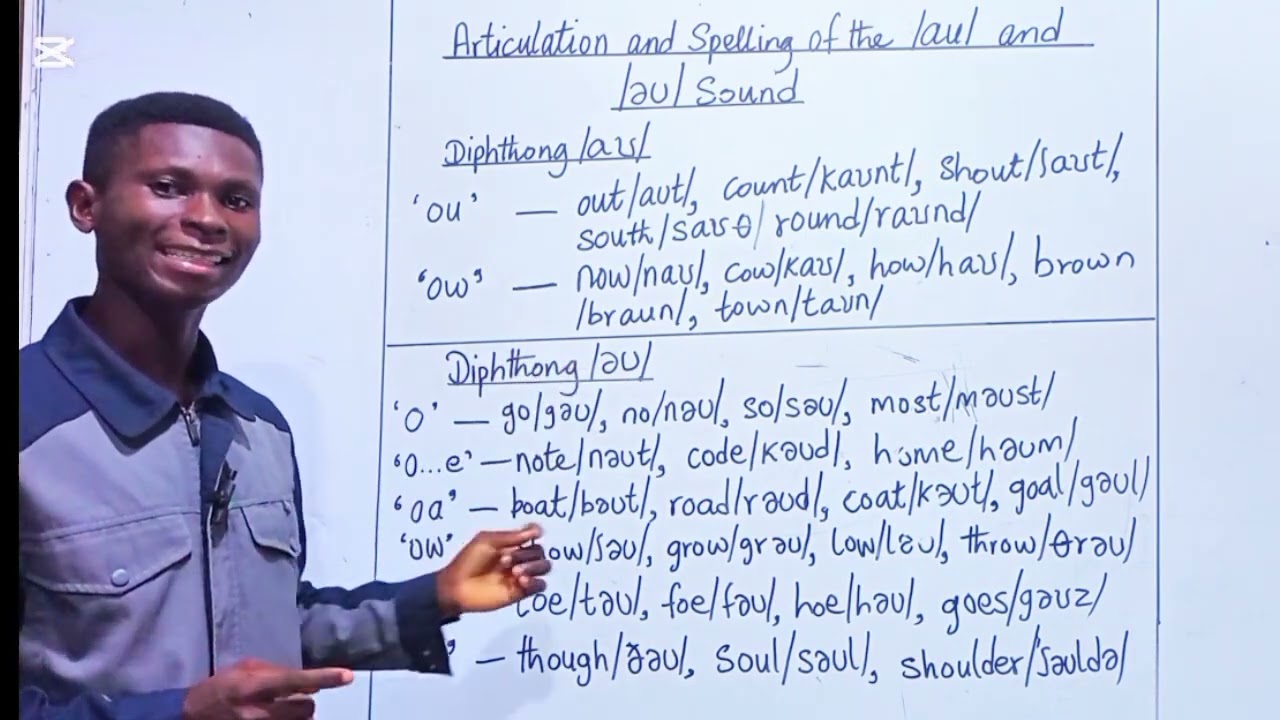 Articulation and Spelling of the /aʊ/ and
/əʊ/ Sound
Diphthong /aʊ/
'ou' — out/aʊt/, count/kaʊnt/, shout/ʃaʊt/,
south/saʊθ/ round/raʊnd/
'ow' — now/naʊ/, cow/kaʊ/, how/haʊ/, brown
/braun/, town/taʊn/
Diphthong /əʊ/
'O' — go/gəʊ/, no/nəʊ/, so/səʊ/, most/məʊst/
'O...e' — note/nəʊt/, code/kəʊd/, home/həʊm/
'oa' — boat/bəʊt/, road/rəʊd/, coat/kəʊt/, goal/gəʊl/
'ow' how/ʃəʊ/, grow/grəʊ/, low/ləʊ/, throw/θrəʊ/
toe/təʊ/, foe/fəʊ/, hoe/həʊ/, goes/gəʊz/
' — though/ðəʊ/, soul/səʊl/, shoulder/'ʃəʊldə/